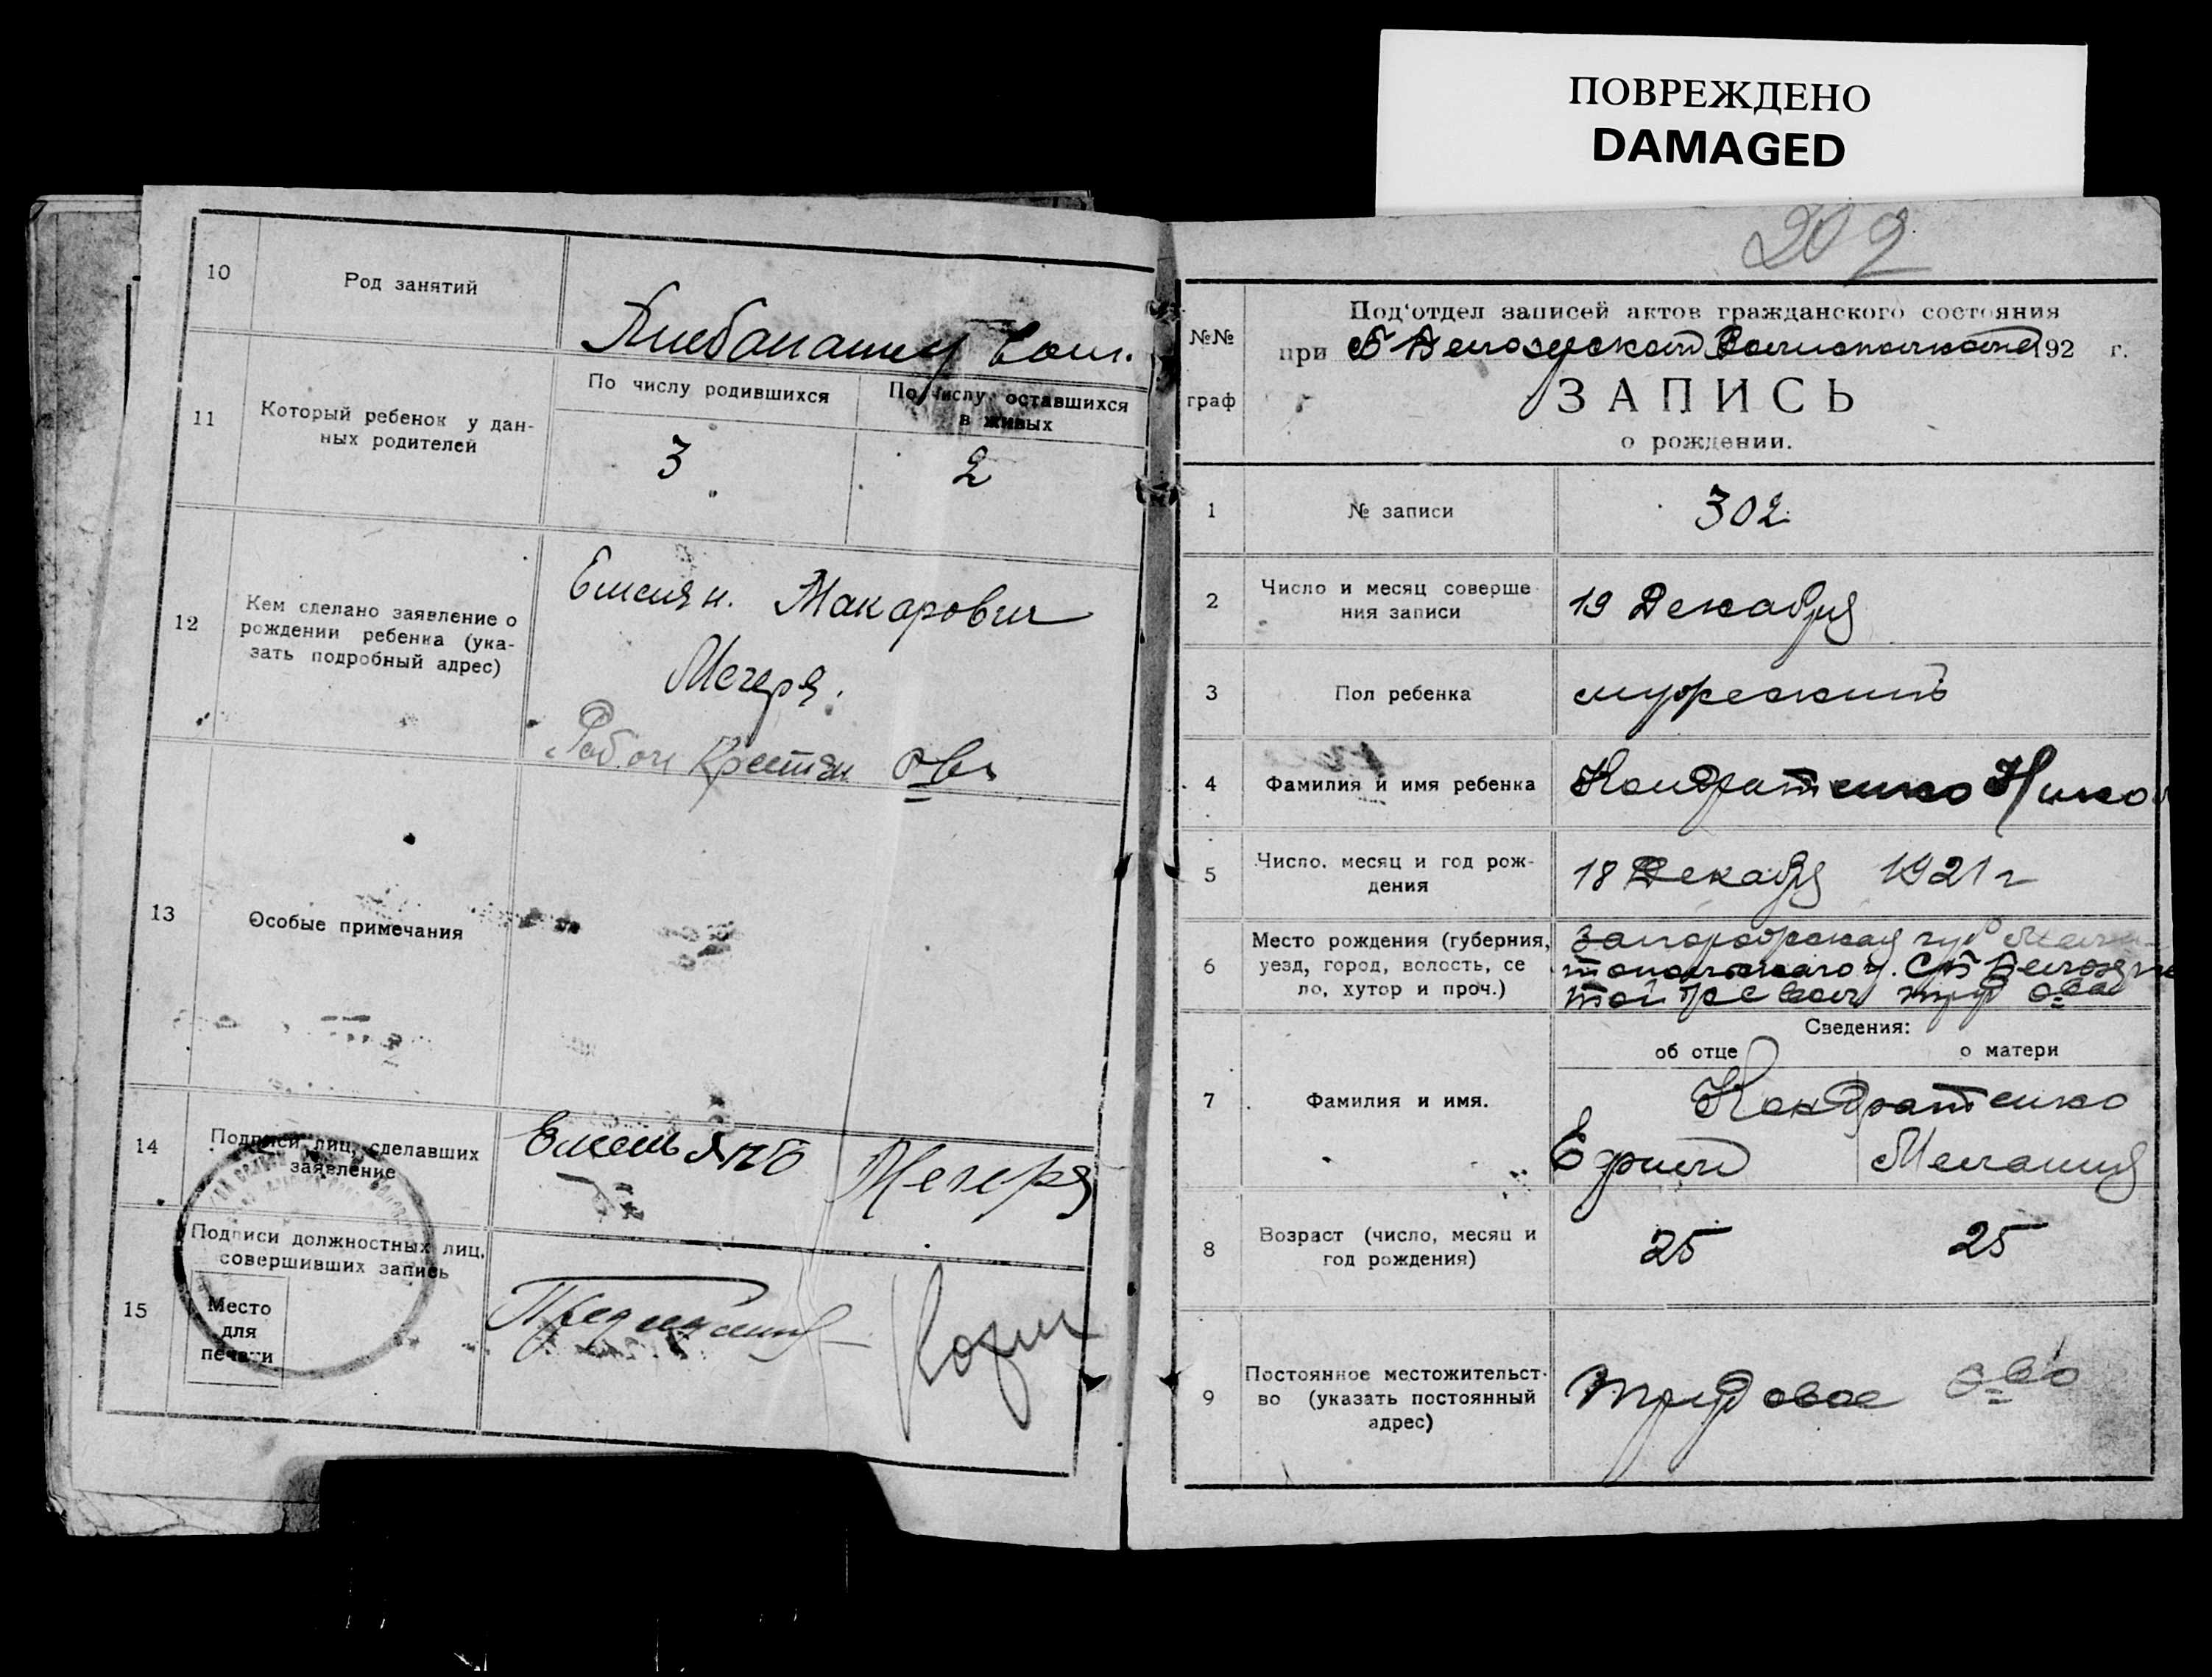 ПОВРЕЖДЕНО
DAMAGED
10
Род занятий
11
Который ребенок у дан-
ных родителей
По числу родившихся
По числу оставшихся
в живых
3
2
12
Кем сделано заявление о
рождении ребенка (ука-
зать подробный адрес)
Емельян. Макарович
Мечеря.
Рабоч Крестян о-ва
13
Особые примечания
14
Подписи лиц, сделавших
заявление
Емельянъ Мечеря
15
Подписи должностных лиц,
совершивших запись
Место
для
печати
209
№№
граф
Под'отдел записей актов гражданского состояния
при 192 г.
ЗАПИСЬ
о рождении.
1
№ записи
302
2
Число и месяц соверше
ния записи
19 Декабря
3
Пол ребенка
мужской
4
Фамилия и имя ребенка
Кондратенко Нико
5
Число, месяц и год рож-
дения
18 Декабря 1921 г
6
Место рождения (губерния,
уезд, город, волость, се
ло, хутор и проч.)
Запорожская губ
Сведения:
об отце
о матери
7
Фамилия и имя.
Кондратенко
Мелания
8
Возраст (число, месяц и
год рождения)
25
25
9
Постоянное местожительст-
во (указать постоянный
адрес)
Трудовое о-во